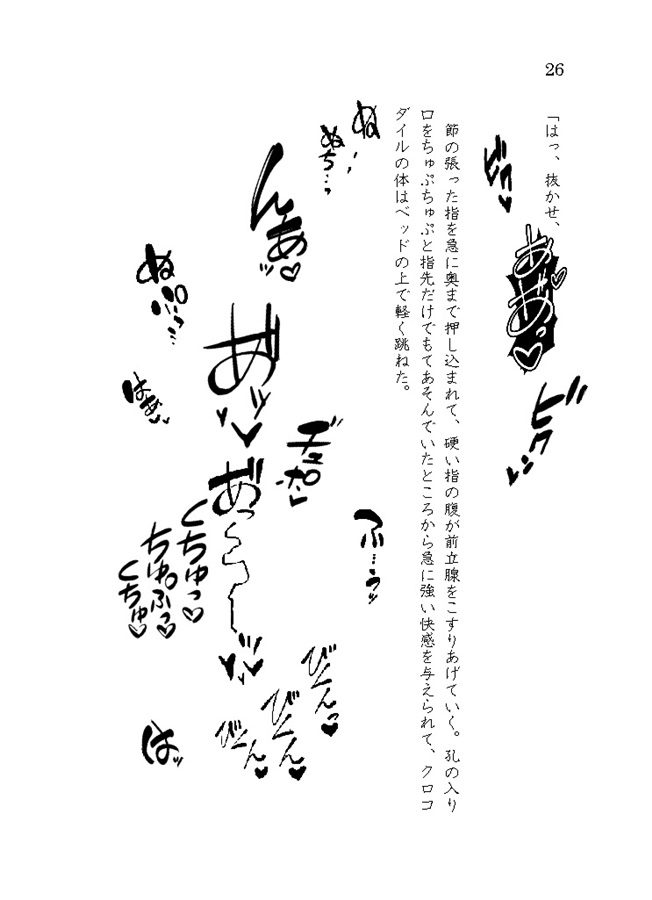 26
「はっ、抜かせ、
ビク♥
あ゛あ゛っ♡♡
ビクン
節の張った指を急に奥まで押し込まれて、硬い指の腹が前立腺をこすりあげていく。孔の入り
口をちゅぷちゅぷと指先だけでもてあそんでいたところから急に強い快感を与えられて、クロコ
ダイルの体はベッドの上で軽く跳ねた。
ぬ
ぬち…っ
んあ゛ッ♡
ふ…うッ
びくんっ♥
びくん♥
びくん♥
くちゅっ♡
ちゅぷっ♡
くちゅ♡
ぬぷぷっ…
はッ